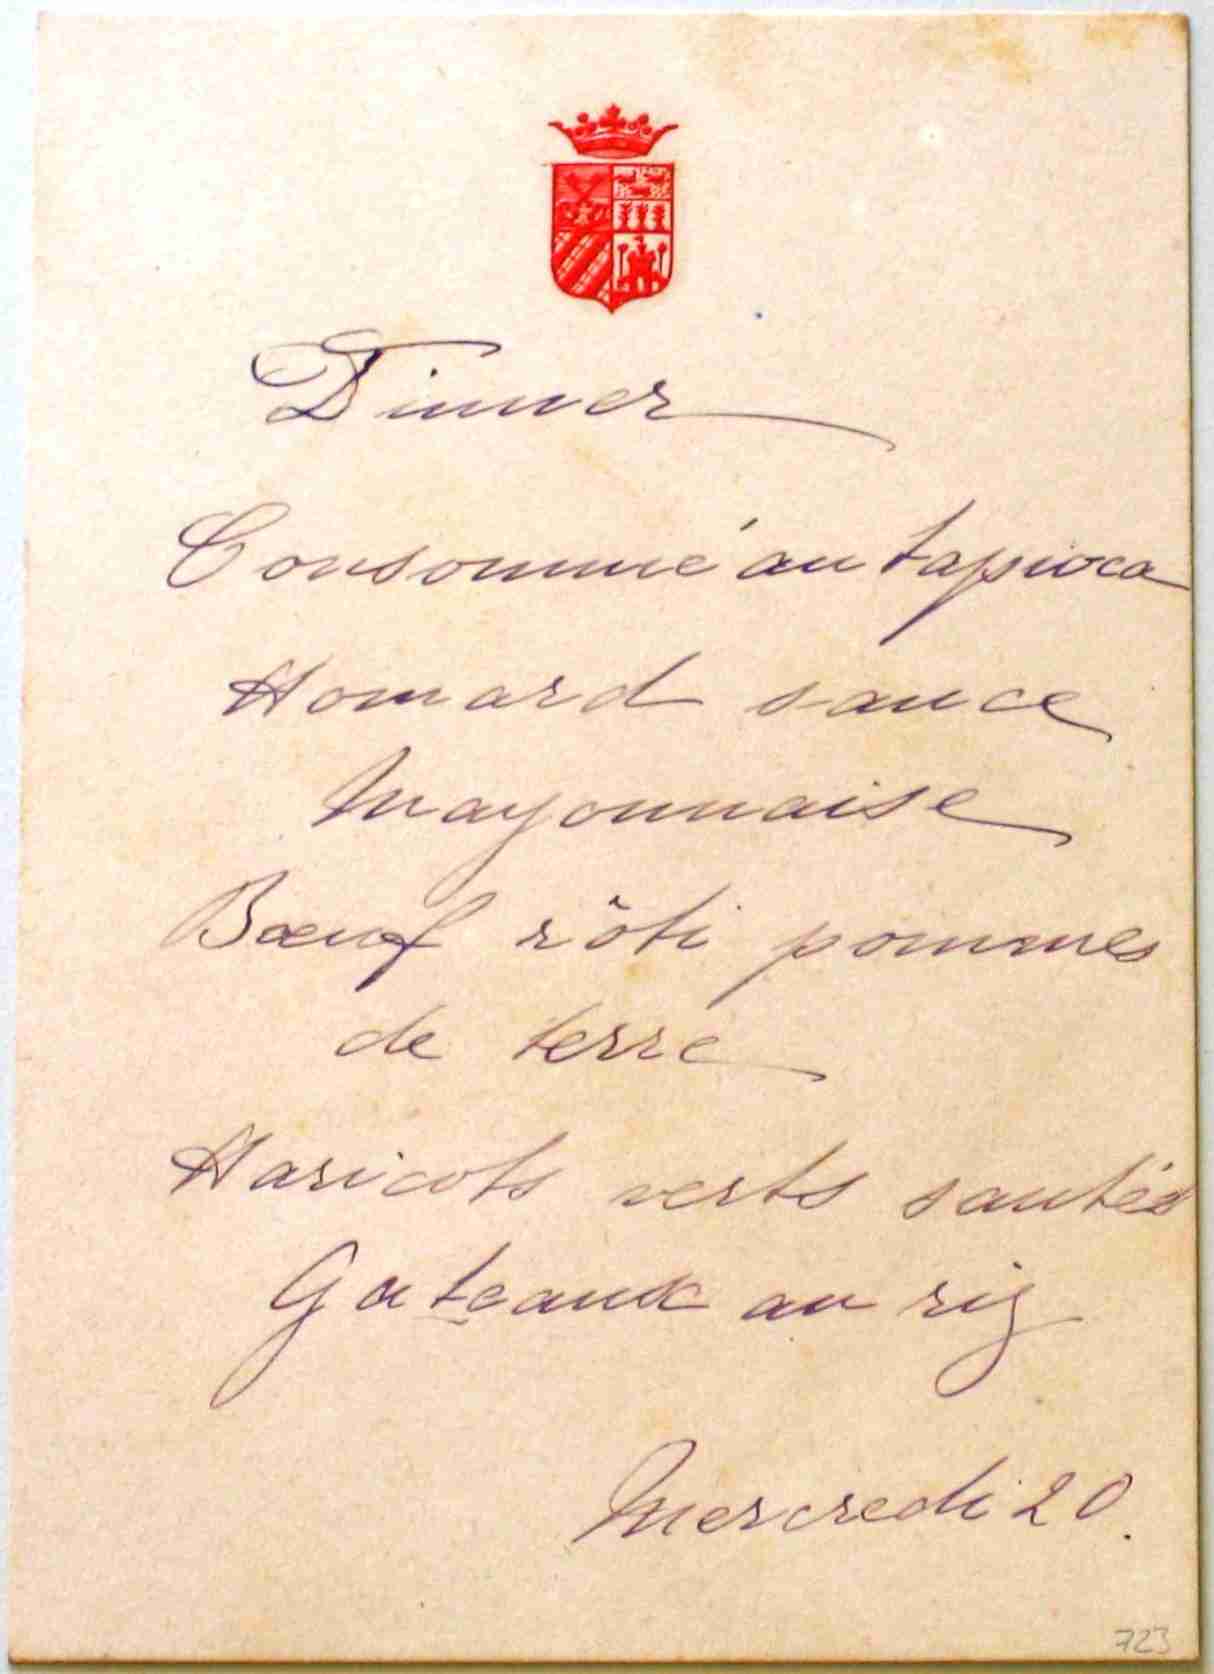 Dinner
Consommé au tapioca
Homard sauce
Mayonnaise
Bœuf rôti pommes
de terre
Haricots verts sautés
Gateaux au riz
Mercredi 20.
723